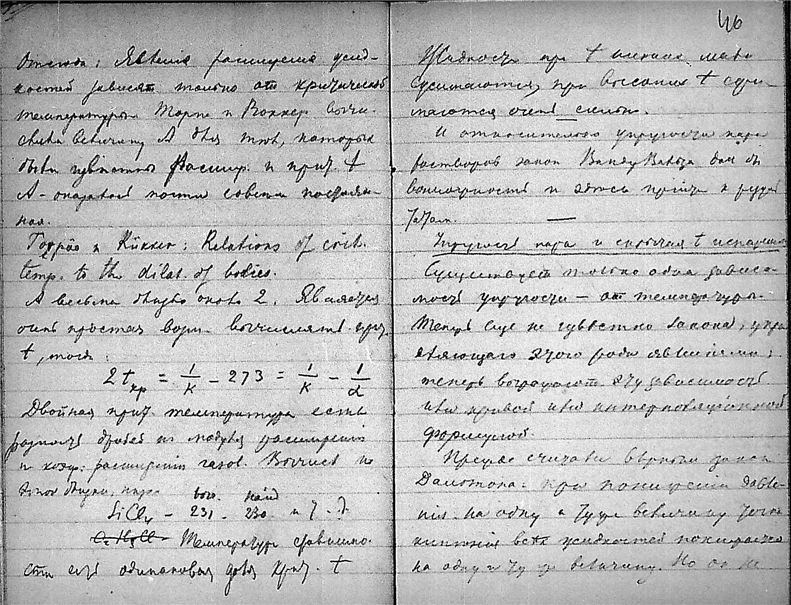 Отсюда: Явленія расширенія жид-
костей зависят только от критической
температуры Торпе и Роккер вычи-
слили величину А для тѣл, которых
были извѣстны расшир. и крит. t
А - оказалось почти совсем постоян-
ная.
Торпе и Rükker: Relations of crit.
temp. to the dilat. of bodies.
А весьма близко около 2. Является
очень простая возм. вычислять крит.
t, тогда:
2t кр = 1/K - 273 = 1/K - 1/α
Двойная крит. температура есть
разность дробей из модуля расширенія
и коэф. расширенія газов. Вычисл. по
этой
выч. найд
SiCl₄ - 231. 230 и т. д.
Температура сравнимо-
сти есть одинаковая для крит. t
46
Жидкость при t низких мало
сжимаются, при высоких t сжи-
маются очень сильно.
И относительно упругости пара
растворов закон Ван дер Ваальса дал
возможность и здѣсь прийти к резуль-
татам.
Упругость пара и скрытая t испаренія
Существует только одна зависи-
мость упругости - от температуры.
Теперь еще не извѣстно закона, упра-
вляющаго этого рода явленіями;
теперь выражают эту зависимость
или кривой или интерполяціонной
формулой.
Прежде считали вѣрным закон
Дальтона: при пониженіи давле-
нія на одну и ту же величину точка
кипѣнія всѣх жидкостей понижается
на одну и ту же величину. Но он не